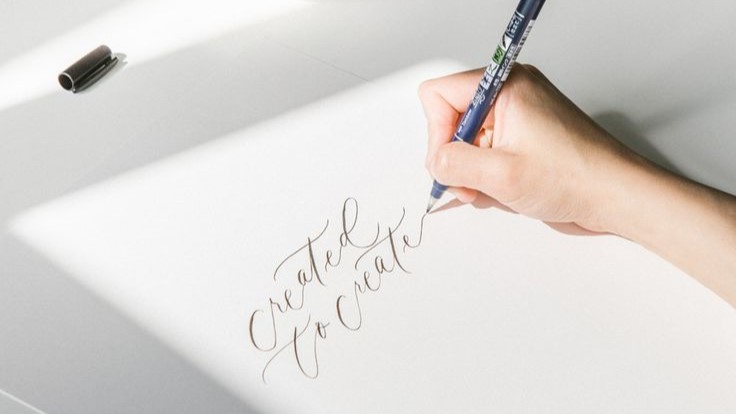 created
to create